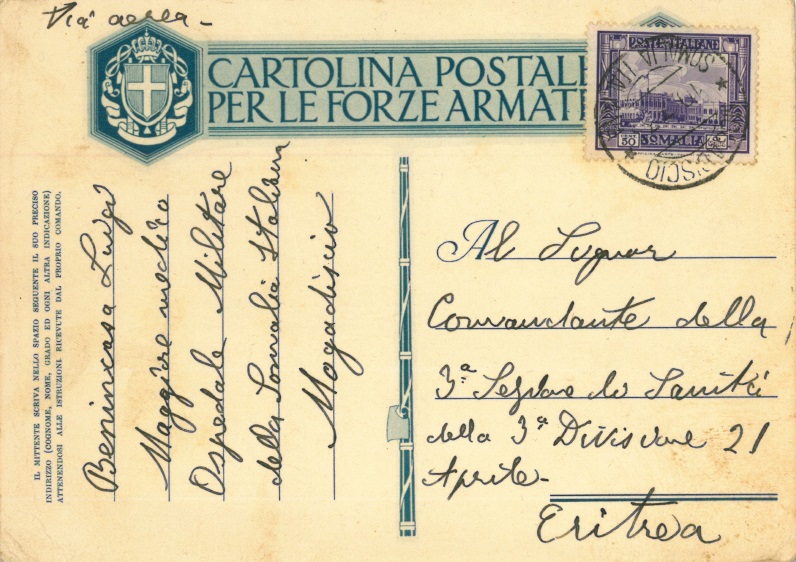 Via aerea -
CARTOLINA POSTALE
PER LE FORZE ARMATE
POSTE ITALIANE
50
SOMALIA
IL MITTENTE SCRIVA NELLO SPAZIO SEGUENTE IL SUO PRECISO
INDIRIZZO (COGNOME, NOME, GRADO ED OGNI ALTRA INDICAZIONE)
ATTENENDOSI ALLE ISTRUZIONI RICEVUTE DAL PROPRIO COMANDO.
Benincasa Luigi
Maggiore medico
Ospedale Militare
della Somalia Italiana
Mogadiscio
Al Signor
Comandante della
3ª Sezione di Sanità
della 3ª Divisione 21
Aprile -
Eritrea